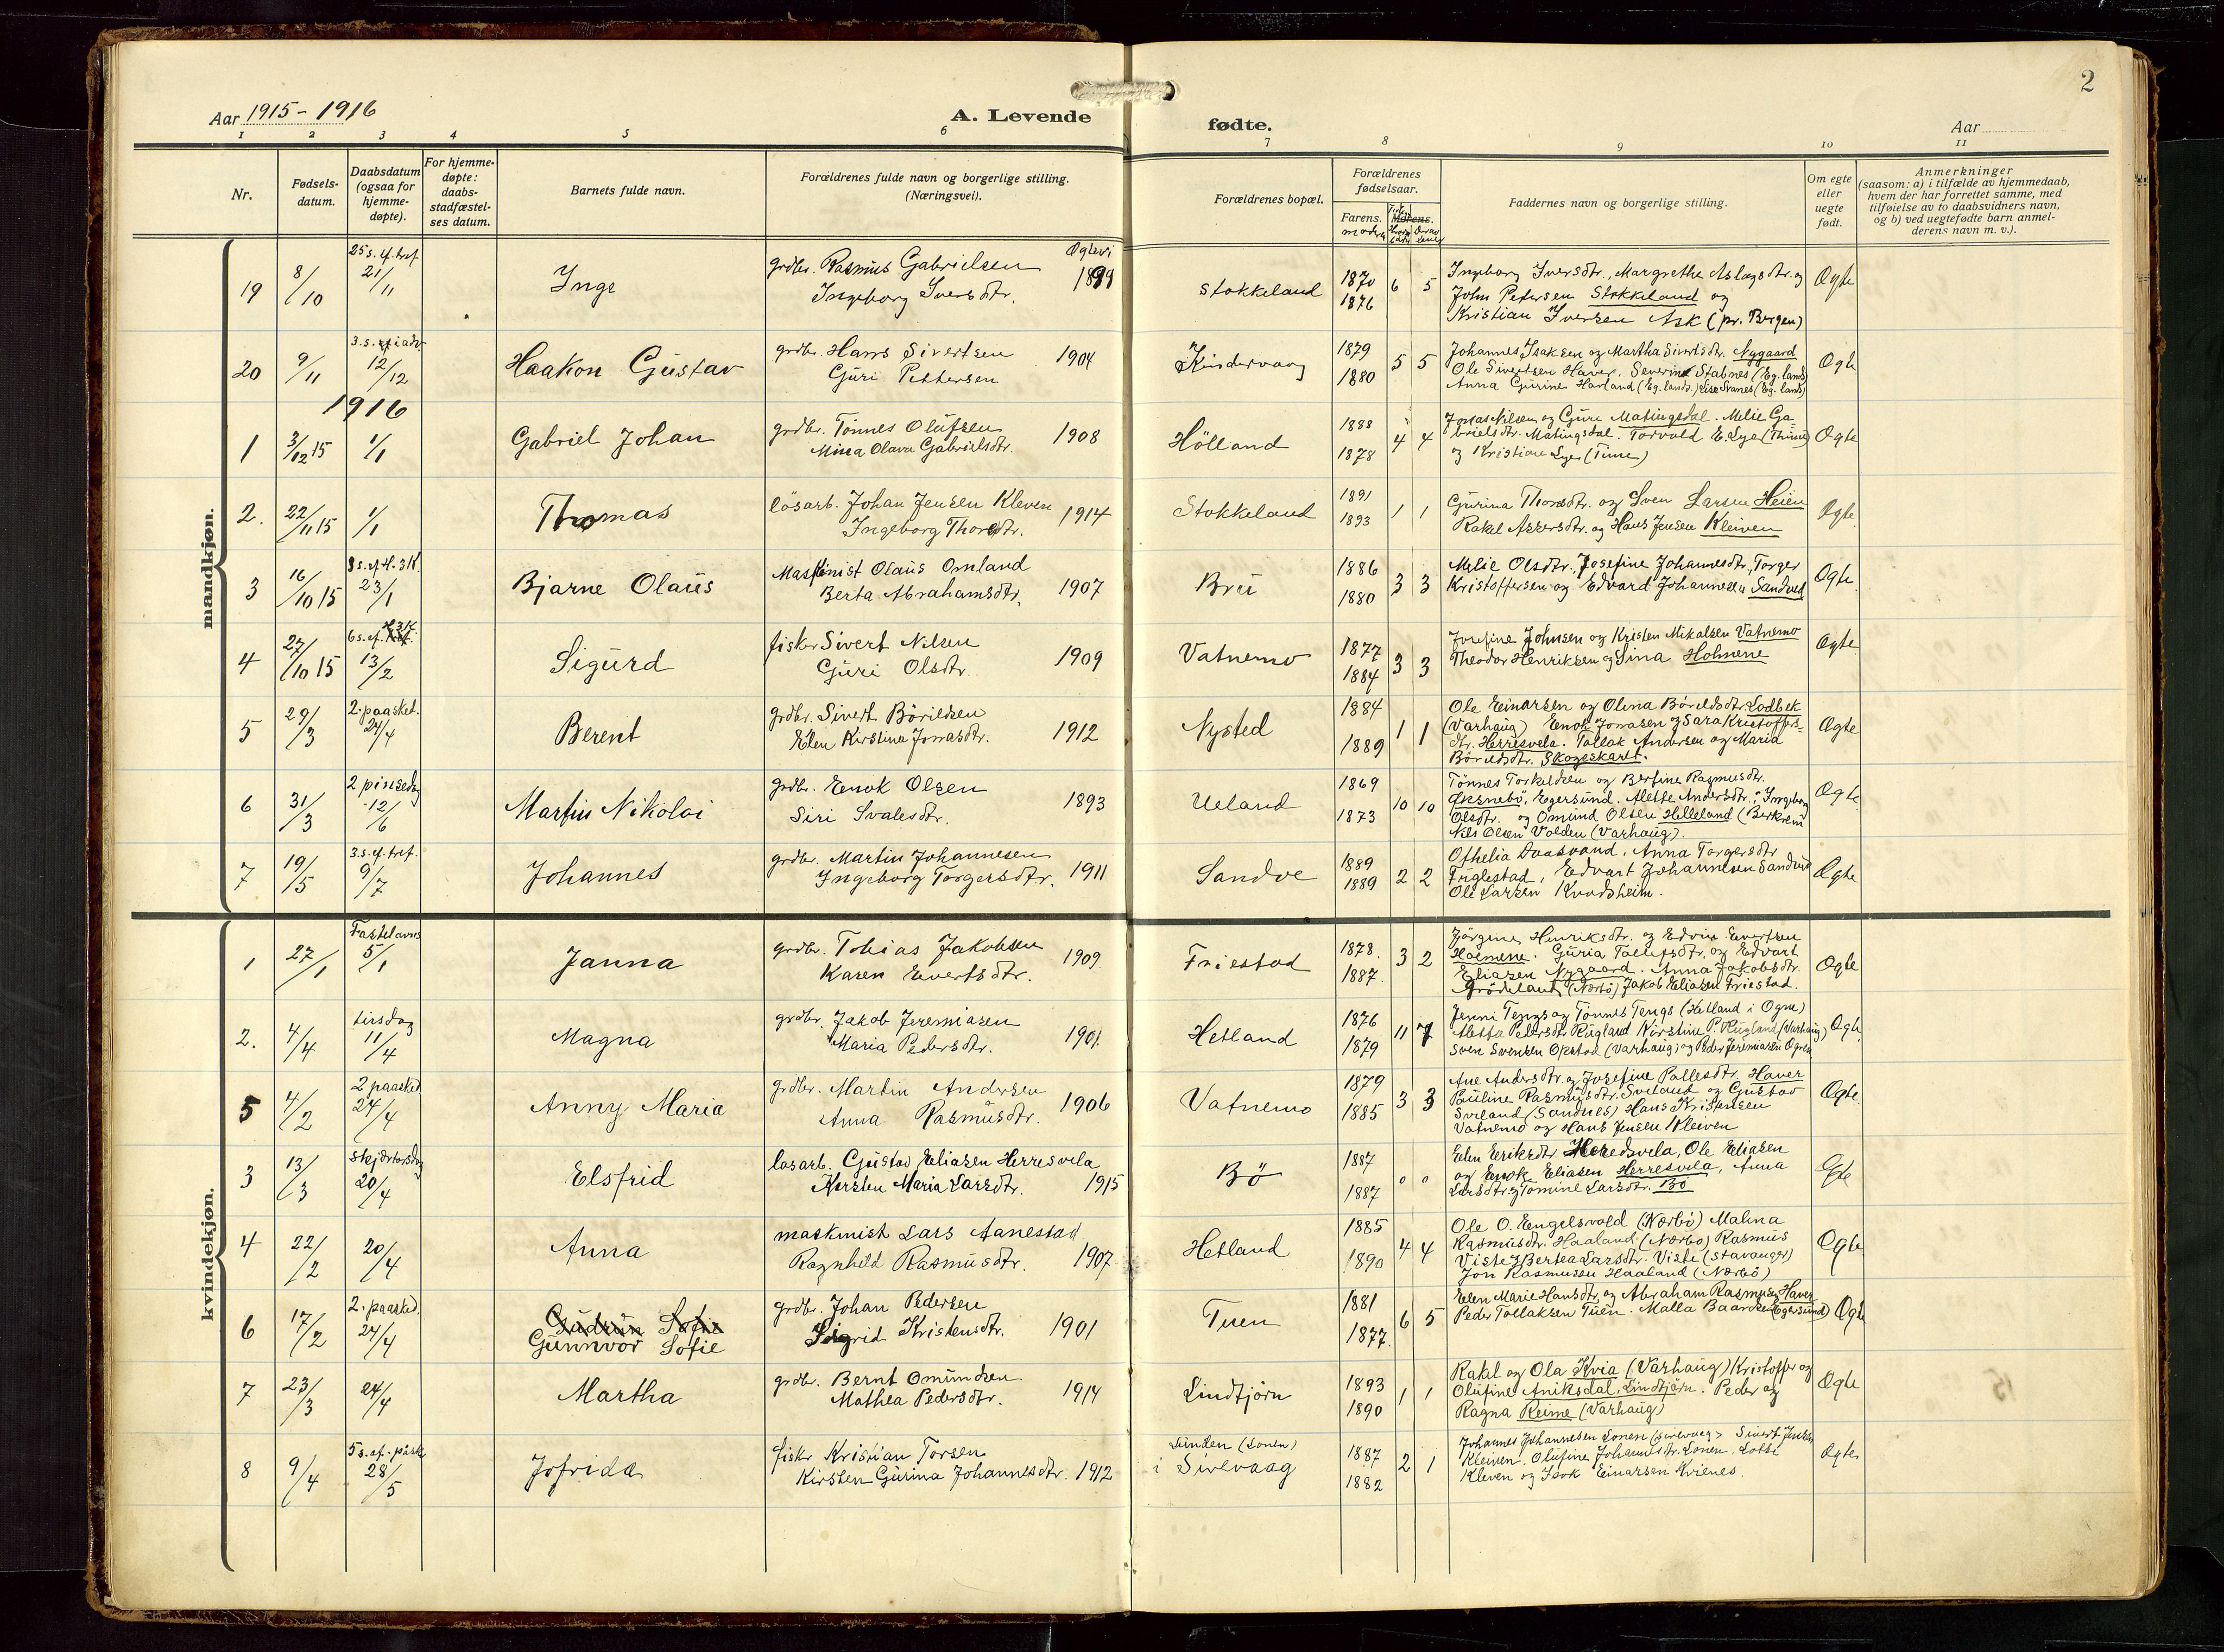 2
Aar 1915-1916
A. Levende
fødte.
Aar
1 2 3 4 5 6 7 8 9 10 11
Nr.
Fødsels-
datum.
Daabsdatum
(ogsaa for
hjemme-
døpte).
For hjemme-
døpte:
daabs-
stadfæstel-
ses datum.
Barnets fulde navn.
Forældrenes fulde navn og borgerlige stilling.
(Næringsvei).
Forældrenes bopæl.
Forældrenes
fødselsaar.
Farens. Morens.
Faddernes navn og borgerlige stilling.
Om egte
eller
uegte
født.
Anmerkninger
(saasom: a) i tilfælde av hjemmedaab,
hvem der har forrettet samme, med
tilføielse av to daabsvidners navn,
og b) ved uegtefødte barn anmel-
derens navn m. v.).
mandkjøn.
19 8/10 25 s. ef. tref. 21/11 Inge
grdbr. Rasmus Gabrielsen
Ingeborg Iversdtr. 1899
Stokkeland 1870 1876 6 5
Ingeborg Iversdtr., Margrethe Aslagsdtr. og
John Petersen Stokkeland og
Kristian Iversen Ask (pr. Bergen)
Ægte
20 9/11 12/12 Haakon Gustav
grdbr. Hans Sivertsen
Guri Pettersen 1904
Kindervaag 1879 1880 5 5
Johannes Isaksen og Martha Sivertsdtr. Nygaard
Ole Sivertsen Haver. Severine Stabnes (Eg. lands)
Anna Gurine Havland (Eg. lands.) Lise Svanes (Eg. lands)
Ægte
1916
1 3/12 15 1/1 Gabriel Johan
grdbr. Tönnes Olufsen
Mina Olava Gabrielsdtr. 1908
Hölland 1888 1878 4 4
Jonas Nilsen og Guri Matingsdal. Melie Ga-
brielsdtr. Matingsdal. Torvald E. Lye (Thime)
og Kristian Lye (Time)
Ægte
2. 22/11 15 1/1 Thomas
lösarb. Johan Jensen Kleven
Ingeborg Thorsdtr. 1914
Stokkeland 1891 1893 1 1
Gurina Thorsdtr. og Sven Larsen Heien
Rakel Assersdtr. og Hans Jensen Kleiven
Ægte
3 16/10 15 3 s. ef. H. 3 K. 23/1 Bjarne Olaus
Maskinist Olaus Omland
Berta Abrahamsdtr. 1907
Bru 1886 1880 3 3
Melie Olsdtr., Josefine Johannesdtr., Torger
Kristoffersen og Edvard Johannesen Sandved
Ægte
4 27/10 15 6 s. ef. H 3 K 13/2 Sigurd
fisker Sivert Nilsen
Guri Olsdtr. 1909
Vatnemo 1877 1884 3 3
Josefine Johnsen og Kristen Mikalsen Vatnemo
Theodor Henriksen og Sina Holmene
Ægte
5 29/3 2. paasked. 24/4 Berent
grdbr. Sivert Börildsen
Elen Kirstina Jonasdtr. 1912
Nysted 1884 1889 1 1
Ole Einarsen og Olena Börildsdtr. Lodbek
(Varhaug) Enok Jonasen og Sara Kristoffers-
dtr. Herresvela. Tollak Andersen og Maria
Börildsdtr. Skogeskaret.
Ægte
6 31/3 2 pinsedag 12/6 Martin Nikolai
grdbr. Enok Olsen
Siri Svalesdtr. 1893
Ueland 1869 1873 10 10
Tönnes Torkeldsen og Bertine Rasmusdtr.
Øksnebö, Egersund. Alette Andersdtr., Ingeborg
Olsdtr. og Omund Olsen Helleland (Berkrem
Nils Olsen Volden (Varhaug).
Ægte
7 19/5 3. s. ef. tref. 9/7 Johannes
grdbr. Martin Johannesen
Ingeborg Torgersdtr. 1911
Sandve 1889 1889 2 2
Othelia Aasvand, Anna Torgersdtr
Fuglestad, Edvart Johannesen Sandved
Ole Larsen Kvadsheim.
Ægte
kvindekjøn.
1 27/1 Fastelavns 5/1 Janna
grdbr. Tobias Jakobsen
Karen Evertsdtr. 1909
Friestad 1878. 1887. 3 2
Jörgine Henriksdtr. og Edvin Evertsen
Holmene. Guria Tollefsdtr. og Edvart
Eliasen Nygaard. Anna Jakobsdtr.
Grödeland (Nærbö) Jakob Eliasen Friestad.
Ægte
2. 4/4 tirsdag 11/4 Magna
grdbr. Jakob Jeremiasen
Maria Pedersdtr. 1901
Hetland 1876 1879 11 7
Jenni Tengs og Tönnes Tengs (Hetland i Ogne)
Aletta Pedersdtr. Rugland Kirstine P. Rugland (Varhaug)
Sven Svensen Opstad (Varhaug) og Peder Jeremiasen Ogna
Ægte
5 4/2 2 paasked 24/4 Anny Maria
grdbr. Martin Andersen
Anna Rasmusdtr. 1906
Vatnemo 1879 1885 3 3
Ane Andersdtr. og Josefine Pallesdtr. Haver
Pauline Rasmusdtr. Sviland og Gustav
Sviland (Sandnes) Hans Kristensen
Vatnemo og Hans Jensen Kleiven
Ægte
3 13/3 skjærtorsdag 20/4 Elsfrid
løsarb. Gustav Eliasen Herresvela
Kirsten Maria Larsdtr. 1915
Bö 1887 1887 0 0
Elen Eriksdtr. Heredsvela, Ole Eliasen
og Enok Eliasen Herresvela, Anna
Larsdtr. og Tomine Larsdtr. Bö
Ægte
4 22/2 20/4 Anna
maskinist Lars Aanestad
Ragnhild Rasmusdtr. 1907
Hetland 1885 1890 4 4
Ole O. Eengelsvold (Nærbö) Malina
Rasmusdtr. Haaland (Nærbö) Rasmus
Viste og Bertea Larsdtr. Viste (Stavanger)
Jon Rasmussen Haaland (Nærbö)
Ægte
6 17/2 2. paasked. 24/4 Gudrun Sofie
Gunnvor Sofie
grdbr. Johan Pedersen
Sigrid Kristensdtr. 1901
Tuen 1881 1877. 6 5
Elen Marie Hansdtr. og Abraham Rasmusen Haver
Peder Tollaksen Tuen. Malla Baardsen (Egersund)
Ægte
7 23/3 24/4 Martha
grdbr. Bernt Omundsen
Mathea Pedersdtr. 1914
Lindtjörn 1893 1890 1 1
Rakel og Ola Kvia (Varhaug) Kristoffer og
Olufine Aniksdal, Lindtjörn. Peder og
Ragna Reime (Varhaug)
Ægte
8 9/4 5 s. ef. påske 28/5 Jofrida
fisker Kristian Torsen
Kirsten Gurina Johannesdtr. 1912
Lunden (Lonen)
i Sirevaag 1887 1882 2 1
Johannes Johannesen Lonen (Sirevaag) Sivert Jensen
Kleiven. Olufine Johannesdtr. Lonen. Lotti
Kleven og Isak Einarsen Kvienes.
Ægte